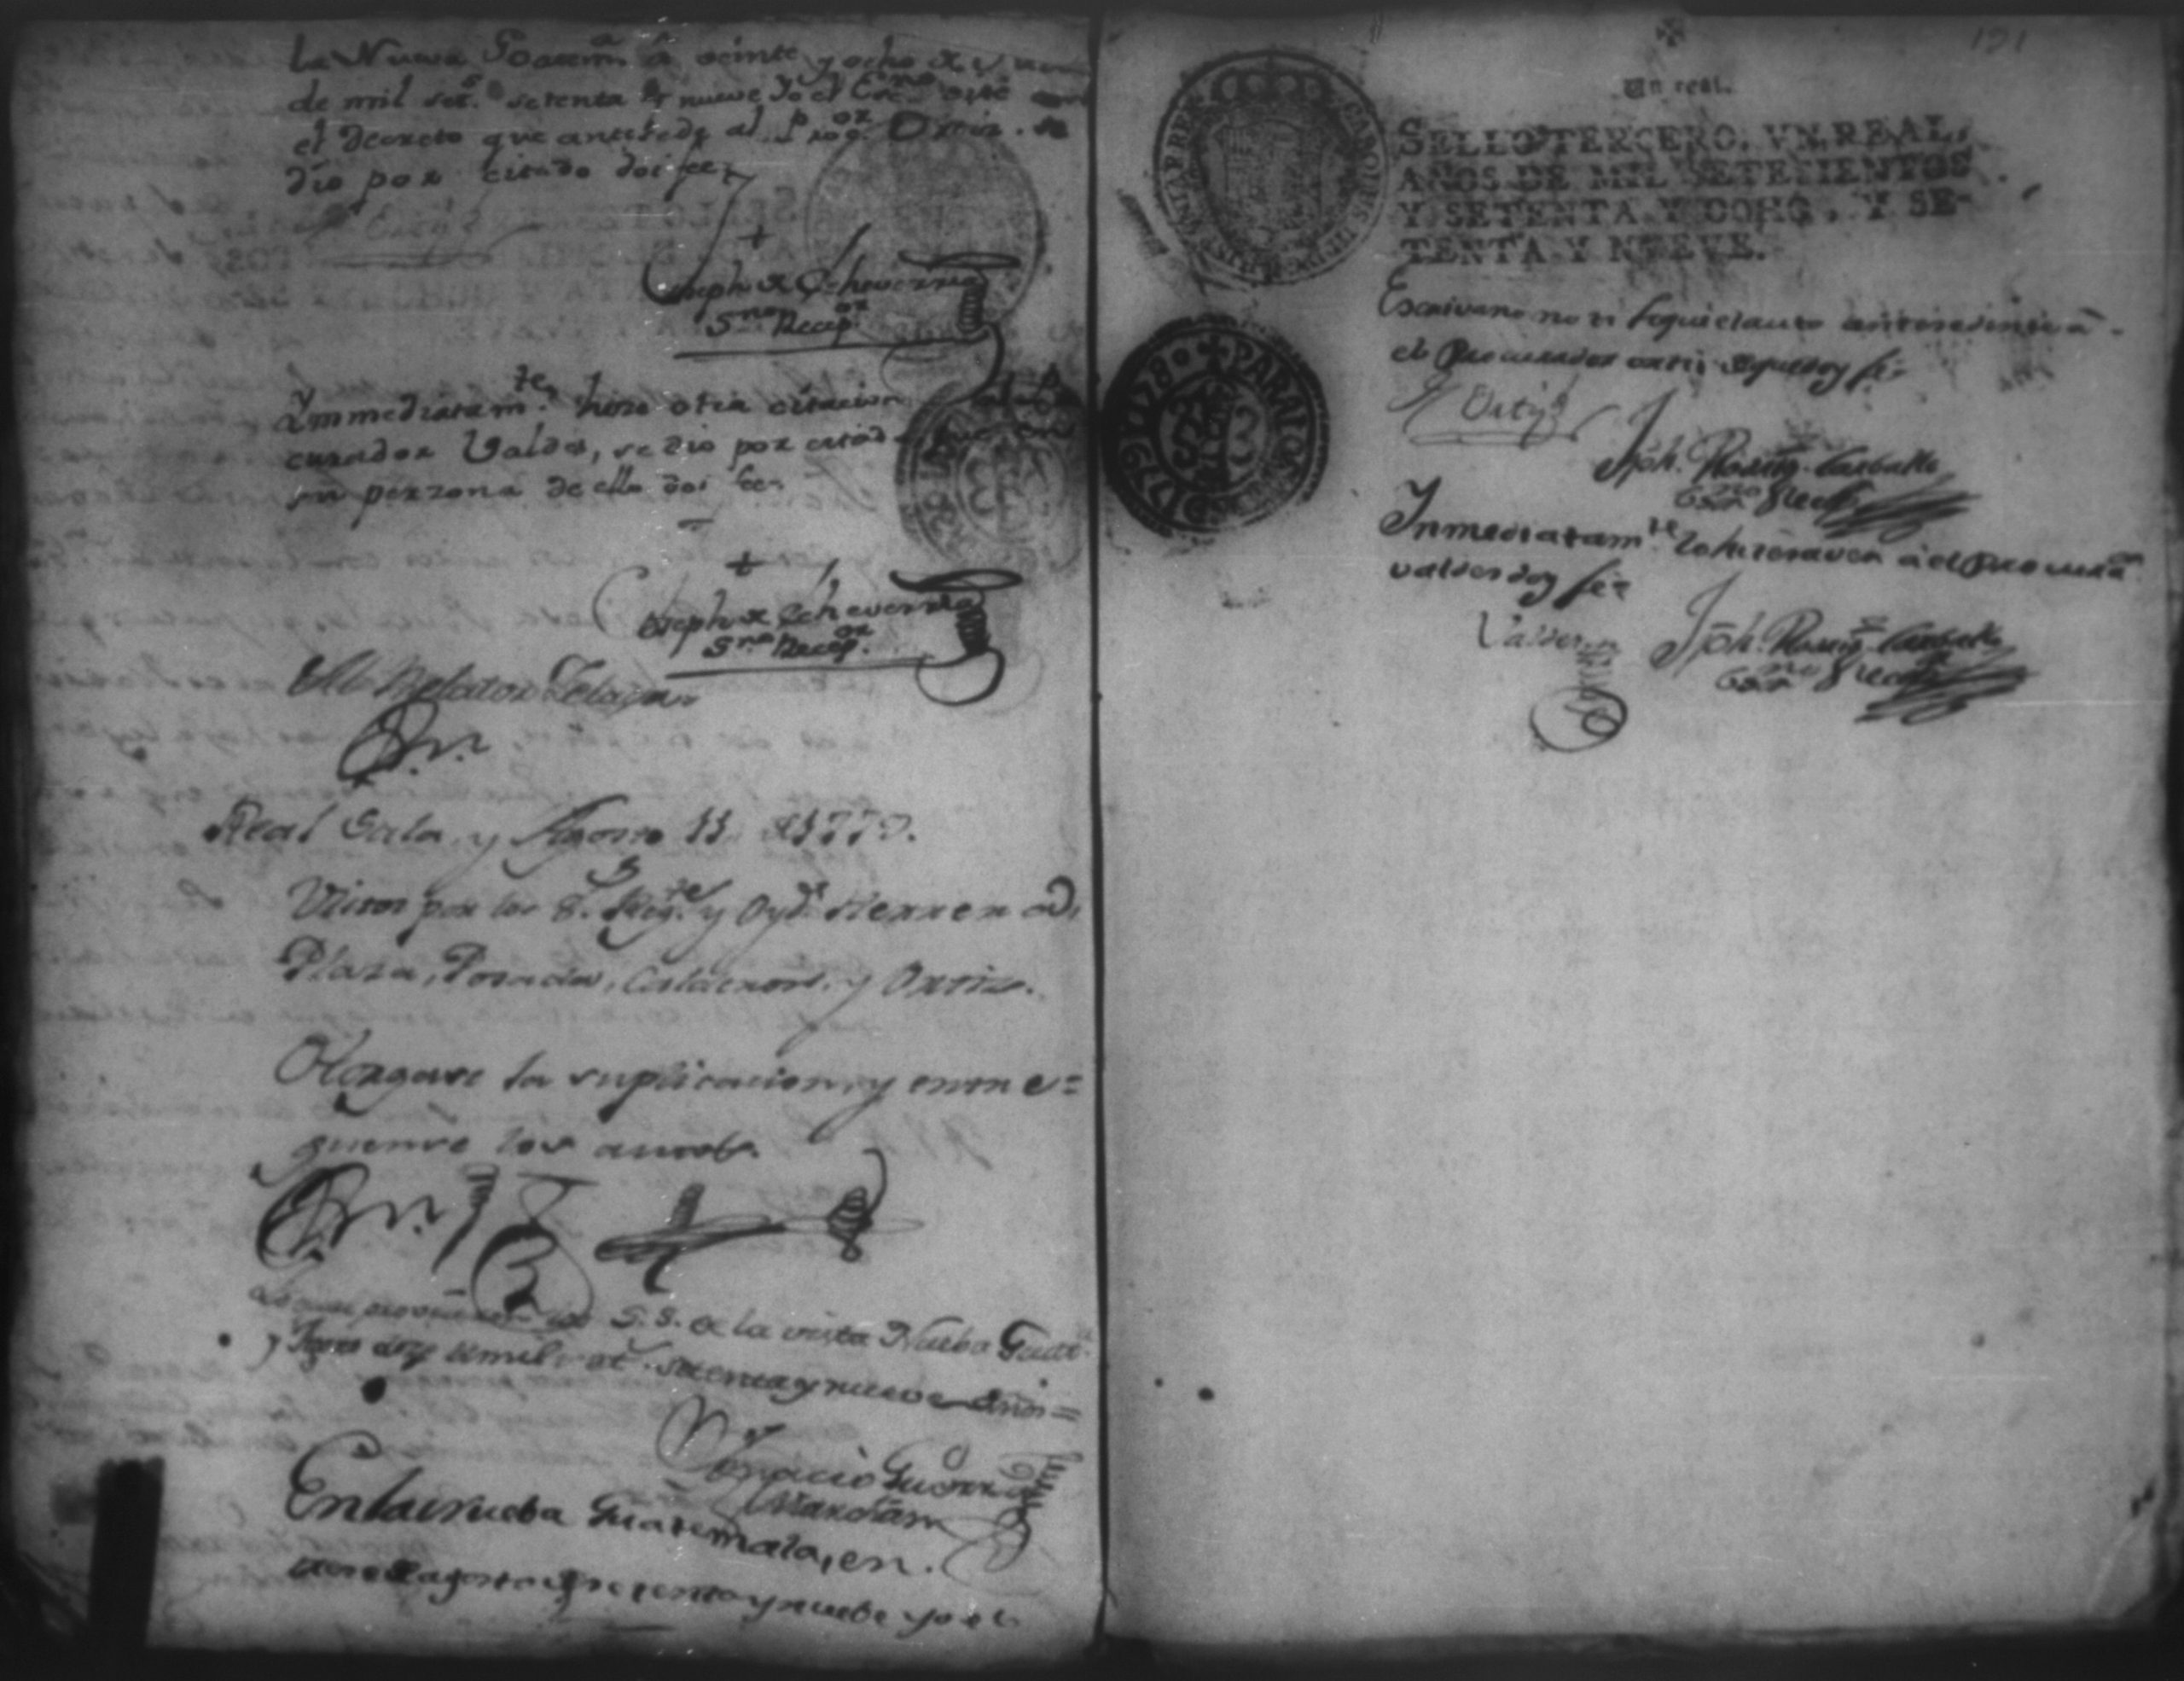 La Nueva Goatem.a à veinte y ocho de
de mil set.s setenta y nueve yo el Esc.no cité
el decreto que antesede al Proc.or Ortiz. se
dio por citado doi fee
Joseph de Echeverria
S.no Recep.or
Ynmediatam.te hize otra citacion
curador Valdes, se dio por citado
en perzona de ello doi fee
Joseph de Echeverria
S.no Recep.or
Al Relator
Real Sala, y Agosto 11 de 1779.
Vistos por los S.s Reg.te y Oyd.s Herrera
Plaza, Posada, y Ortiz.
Otorgase la suplicacion, y entre=
guense los autos.
Lo que proveieron los S.S. de la vista Nueba Guat.a
y Agosto de mil set.s setenta y nueve años=
Ygnacio Guerra
Marchan
En la nueba Guatemala, en
de agosto de setenta y nuebe yo el
131
Un real.
SELLO TERCERO, VN REAL,
AÑOS DE MIL SETECIENTOS
Y SETENTA Y OCHO, Y SE-
TENTA Y NUEVE.
1778 PARA LOS 1779
Escrivano notifiqué el auto antesedente à
el Procurador ortis de que doy fé
Ortiz
Jph. Rodrig.z Carballo
Ess.no Recep.r
Inmediatam.te lo hize saver à el Procura.or
valdes doy fé
Valdes
Jph. Rodrig.z Carballo
Ess.no Recep.r